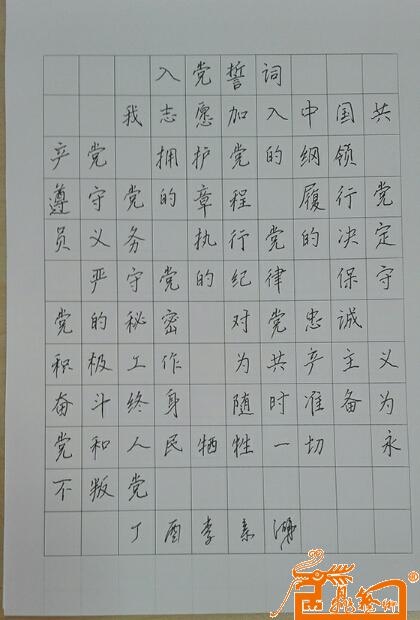 入党誓词
我志愿加入中国共
产党 拥护党的纲领
遵守党的章程 履行党
员义务 执行党的决定
严守党的纪律 保守
党的秘密 对党忠诚
积极工作 为共产主义
奋斗终身 随时准备为
党和人民牺牲一切 永
不叛党
丁酉李素